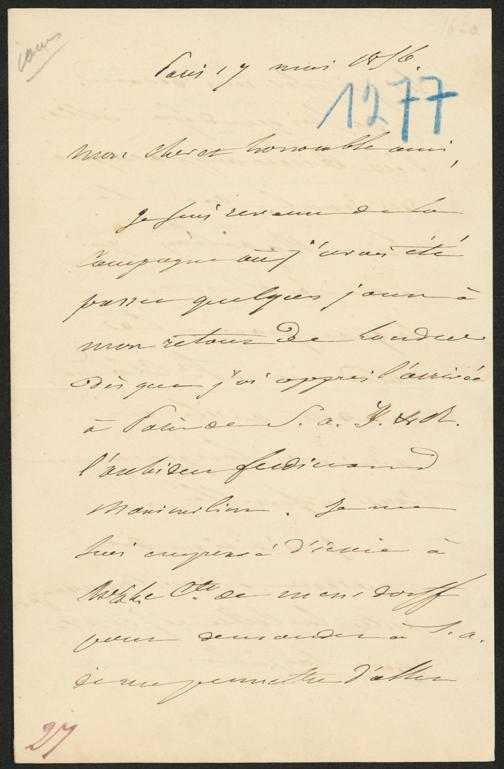 Paris 17 mai 1856.
1277
Mon cher et honorable ami,
Je suis revenu de la
campagne où j'avais été
passer quelques jours à
mon retour de Londres
dès que j'ai appris l'arrivée
à Paris de S. A. I. & R.
l'archiduc ferdinand
Maximilien. Je me
suis empressé d'écrire à
Mr le Cte de mensdorff
pour demander à S. A.
de me permettre d'aller
27